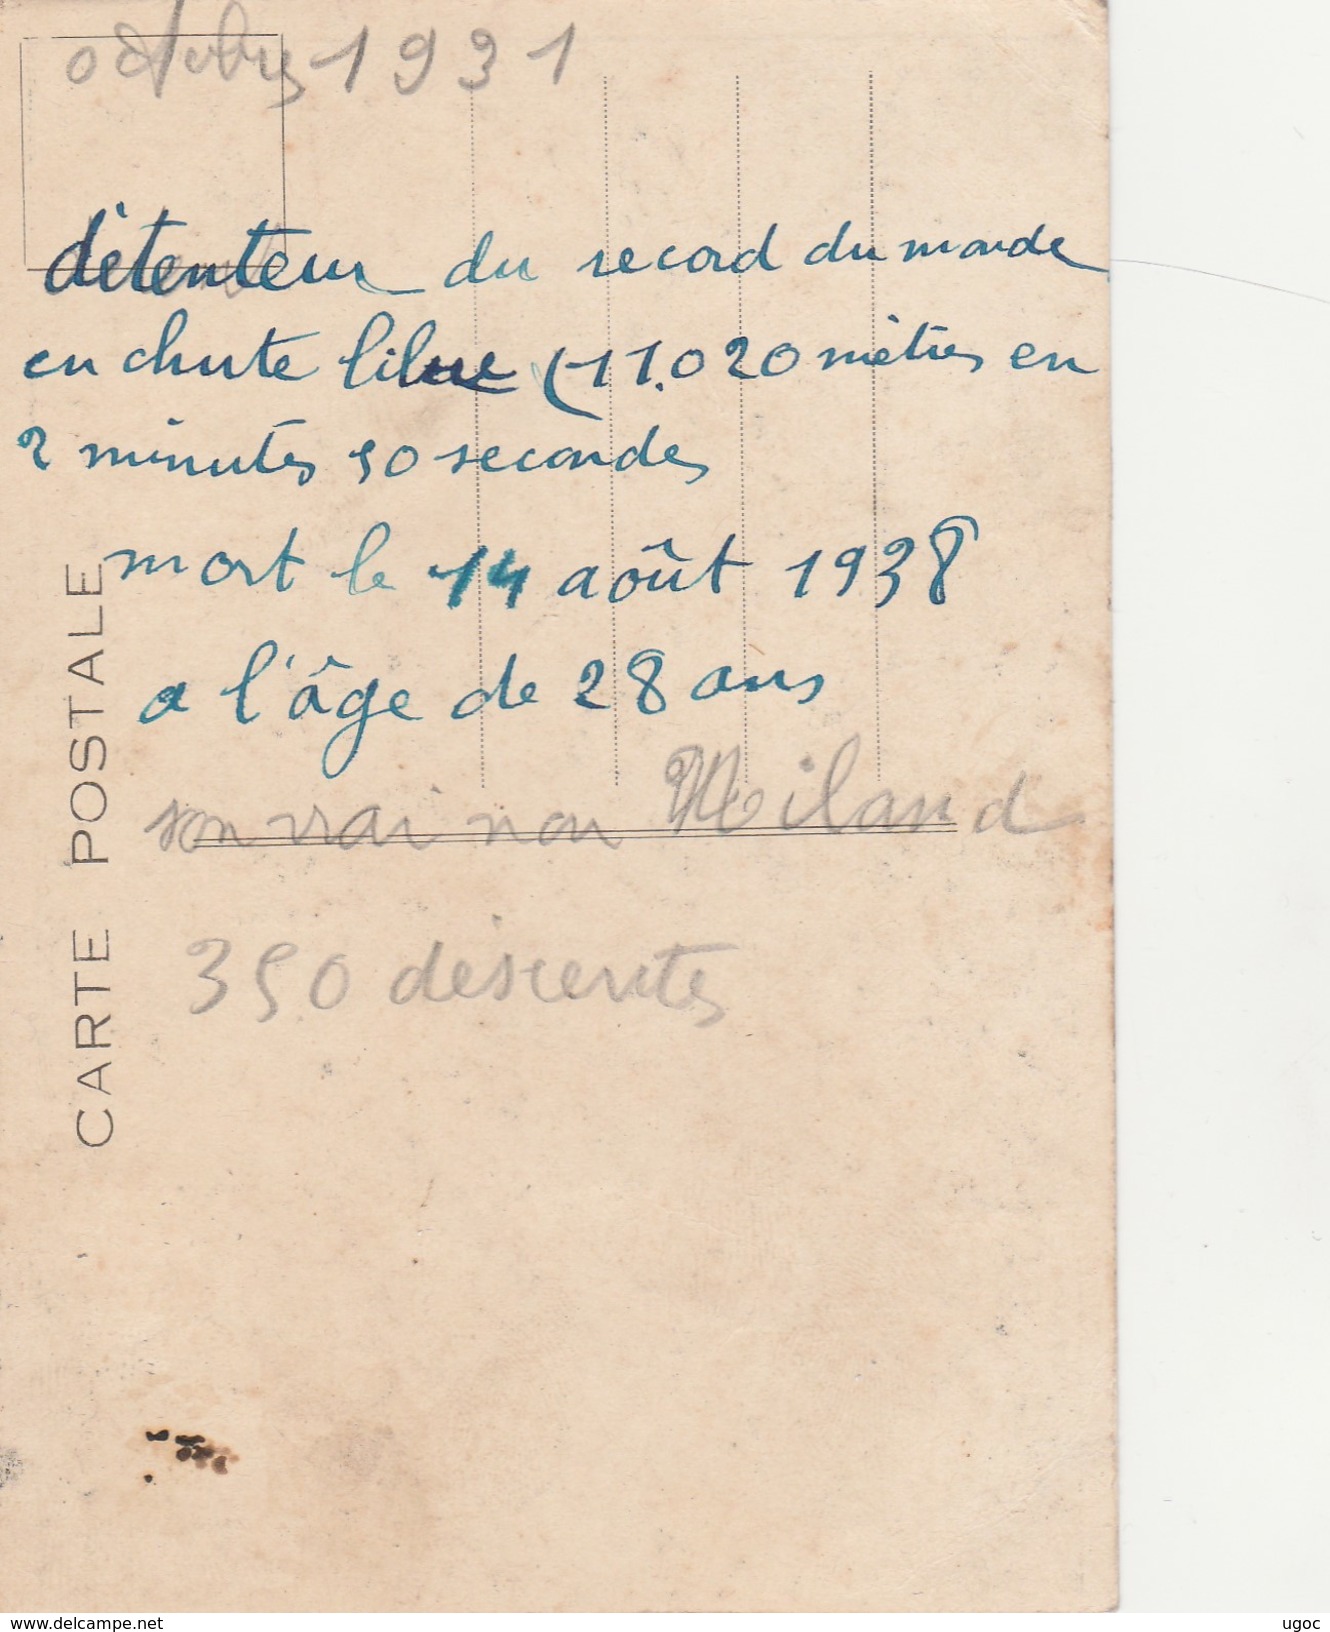 octobre 1931
détenteur du record du monde
en chute libre (11.020 mètres en
2 minutes 50 secondes
mort le 14 août 1938
a l'âge de 28 ans
son vrai nom Niland
350 descentes
CARTE POSTALE
www.delcampe.net
ugoc